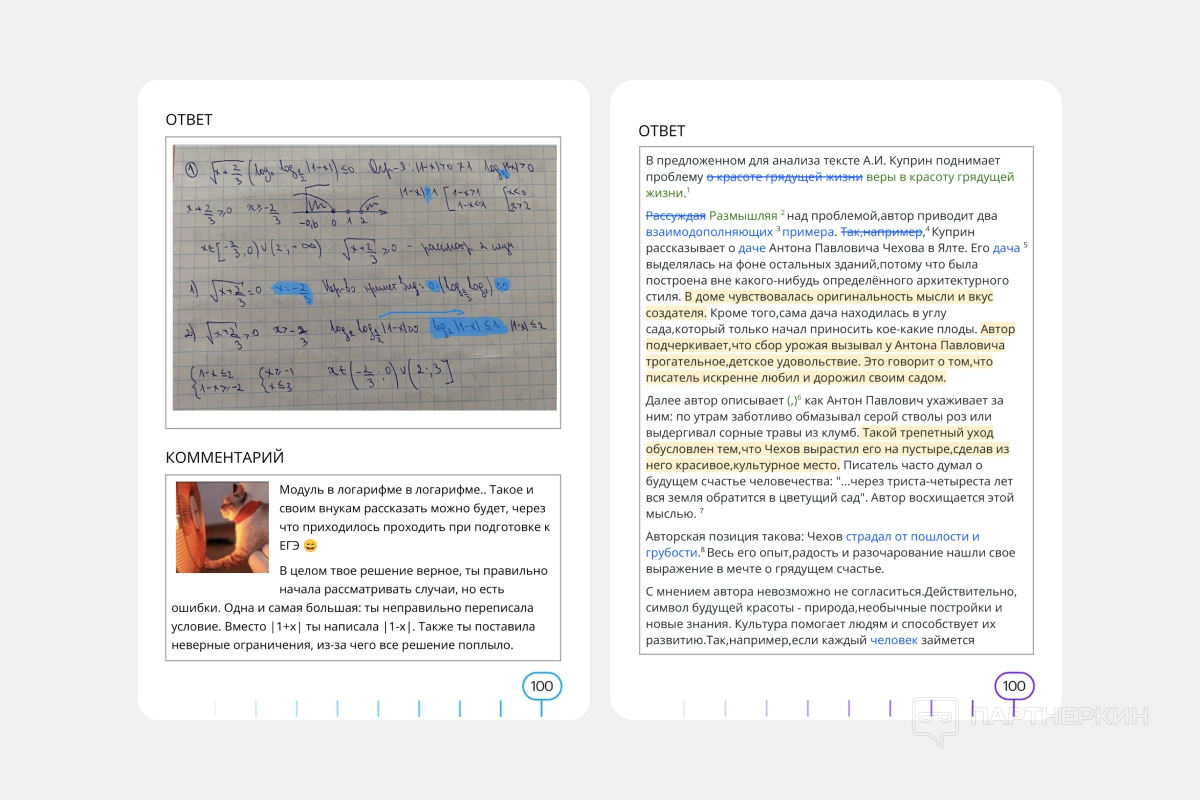 ОТВЕТ
① √(x+2/3) (log₂ log_{1/2} |1-x|) ≤ 0
x+2/3 ≥ 0 x ≥ -2/3
|1-x| 1-x>1 x<0
x>2
0 1 2
√(x+2/3) ≥ 0
1) √(x+2/3) = 0 x = -2/3
2) √(x+2/3) > 0 x > -2/3 |1-x| ≤ 2
1-x ≤ 2 x ≥ -1
1-x ≥ -2 x ≤ 3
КОММЕНТАРИЙ
Модуль в логарифме в логарифме.. Такое и
своим внукам рассказать можно будет, через
что приходилось проходить при подготовке к
ЕГЭ 😄
В целом твое решение верное, ты правильно
начала рассматривать случаи, но есть
ошибки. Одна и самая большая: ты неправильно переписала
условие. Вместо |1+x| ты написала |1-x|. Также ты поставила
неверные ограничения, из-за чего все решение поплыло.
100
ОТВЕТ
В предложенном для анализа тексте А.И. Куприн поднимает
проблему о красоте грядущей жизни веры в красоту грядущей
жизни.¹
Рассуждая Размышляя ² над проблемой,автор приводит два
взаимодополняющих ³ примера. Так,например,⁴ Куприн
рассказывает о даче Антона Павловича Чехова в Ялте. Его дача ⁵
выделялась на фоне остальных зданий,потому что была
построена вне какого-нибудь определённого архитектурного
стиля. В доме чувствовалась оригинальность мысли и вкус
создателя. Кроме того,сама дача находилась в углу
сада,который только начал приносить кое-какие плоды. Автор
подчеркивает,что сбор урожая вызывал у Антона Павловича
трогательное,детское удовольствие. Это говорит о том,что
писатель искренне любил и дорожил своим садом.
Далее автор описывает (,)⁶ как Антон Павлович ухаживает за
ним: по утрам заботливо обмазывал серой стволы роз или
выдергивал сорные травы из клумб. Такой трепетный уход
обусловлен тем,что Чехов вырастил его на пустыре,сделав из
него красивое,культурное место. Писатель часто думал о
будущем счастье человечества: "...через триста-четыреста лет
вся земля обратится в цветущий сад". Автор восхищается этой
мыслью. ⁷
Авторская позиция такова: Чехов страдал от пошлости и
грубости.⁸ Весь его опыт,радость и разочарование нашли свое
выражение в мечте о грядущем счастье.
С мнением автора невозможно не согласиться.Действительно,
символ будущей красоты - природа,необычные постройки и
новые знания. Культура помогает людям и способствует их
развитию.Так,например,если каждый человек займется
100
ПАРТНЕРКИН